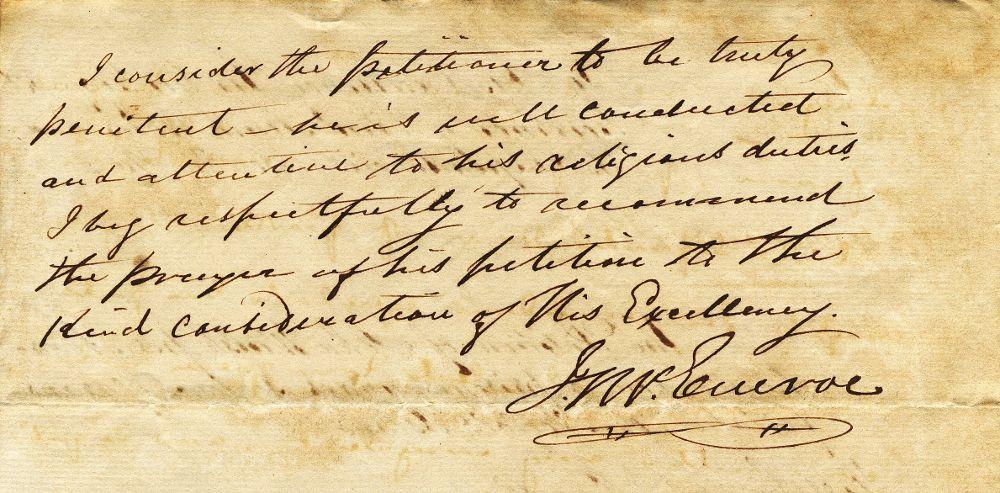 I consider the petitioner to be truly
penitent - he is well conducted
and attentive to his religious duties.
I beg respectfully to recommend
the prayer of his petition to the
Kind consideration of His Excellency.